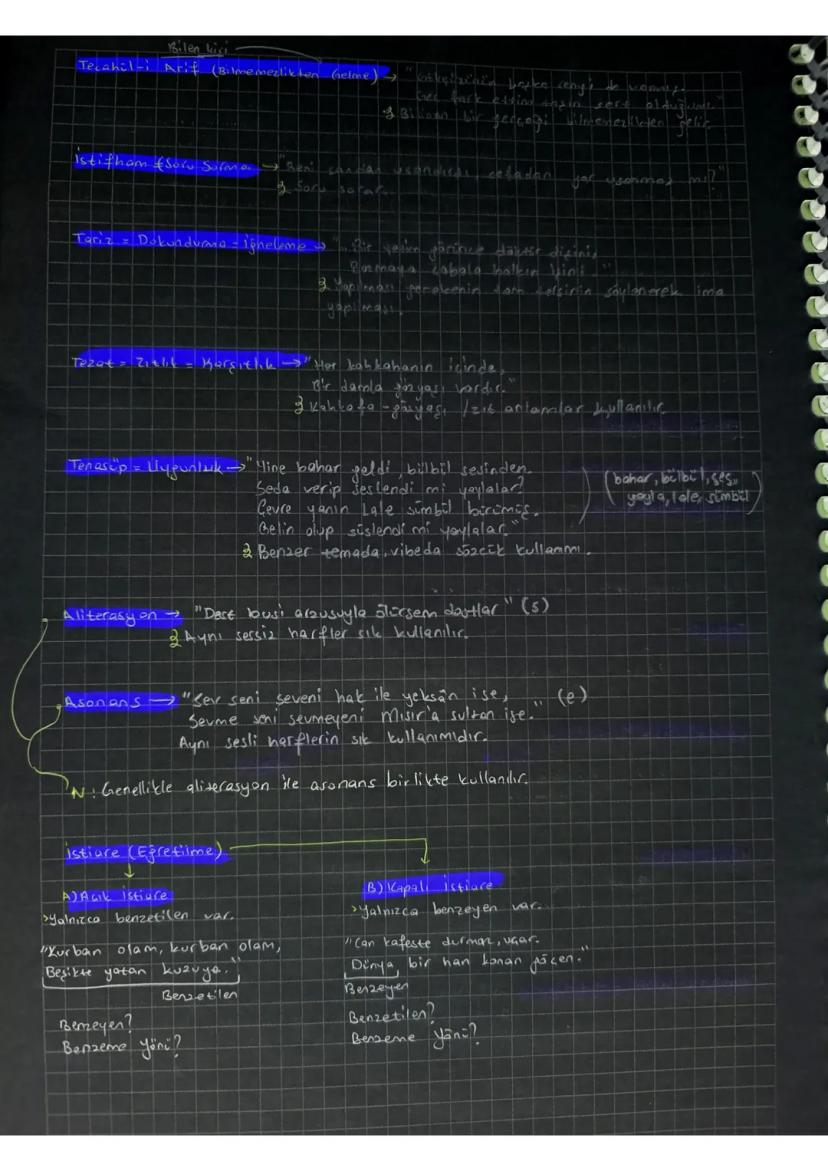 Bilen kişi
Tecahül-i Arif (Bilmemezlikten Gelme) → "Gökyüzünün başka rengi de varmış.
Geç fark ettim taşın sert olduğunu."
Bilinen bir gerçeği bilmemezlikten gelir.
İstifham (Soru Sorma → "Beni candan usandırdı, cefadan yar usanmaz mı?"
Soru sorar.
Tariz = Dokundurma = iğneleme → "Bir yetim görünce döktür dişini,
Bozmaya çabala halkın işini."
Yapılması gerekenin tam tersinin söylenerek ima
yapılması.
Tezat = Zıtlık = Karşıtlık → "Her kahkahanın içinde,
Bir damla gözyaşı vardır."
Kahkaha - gözyaşı / zıt anlamlar kullanılır.
Tenasüp = Uygunluk → "Yine bahar geldi, bülbül sesinden.
Seda verip seslendi mi yaylalar?
Çevre yanın Lale sümbül bürümüş.
Gelin olup süslendi mi yaylalar."
(bahar, bülbül, ses,
yayla, lale, sümbül)
Benzer temada, vibeda sözcük kullanımı.
Aliterasyon → "Dest busi arzusuyla ölürsem dostlar" (s)
Aynı sessiz harfler sık kullanılır.
Asonans → "Sev seni seveni hak ile yeksân ise,
Sevme seni sevmeyeni Mısır'a sultan ise." (e)
Aynı sesli harflerin sık kullanımıdır.
N: Genellikle aliterasyon ile asonans birlikte kullanılır.
istiare (Eğretilme)
A) Açık istiare
Yalnızca benzetilen var.
"Kurban olam, kurban olam,
Beşikte yatan kuzuya."
Benzetilen
Benzeyen?
Benzeme Yönü?
B) Kapalı istiare
Yalnızca benzeyen var.
"Can kafeste durmaz, uçar.
Dünya bir han konan göçen."
Benzeyen
Benzetilen?
Benzeme Yönü?